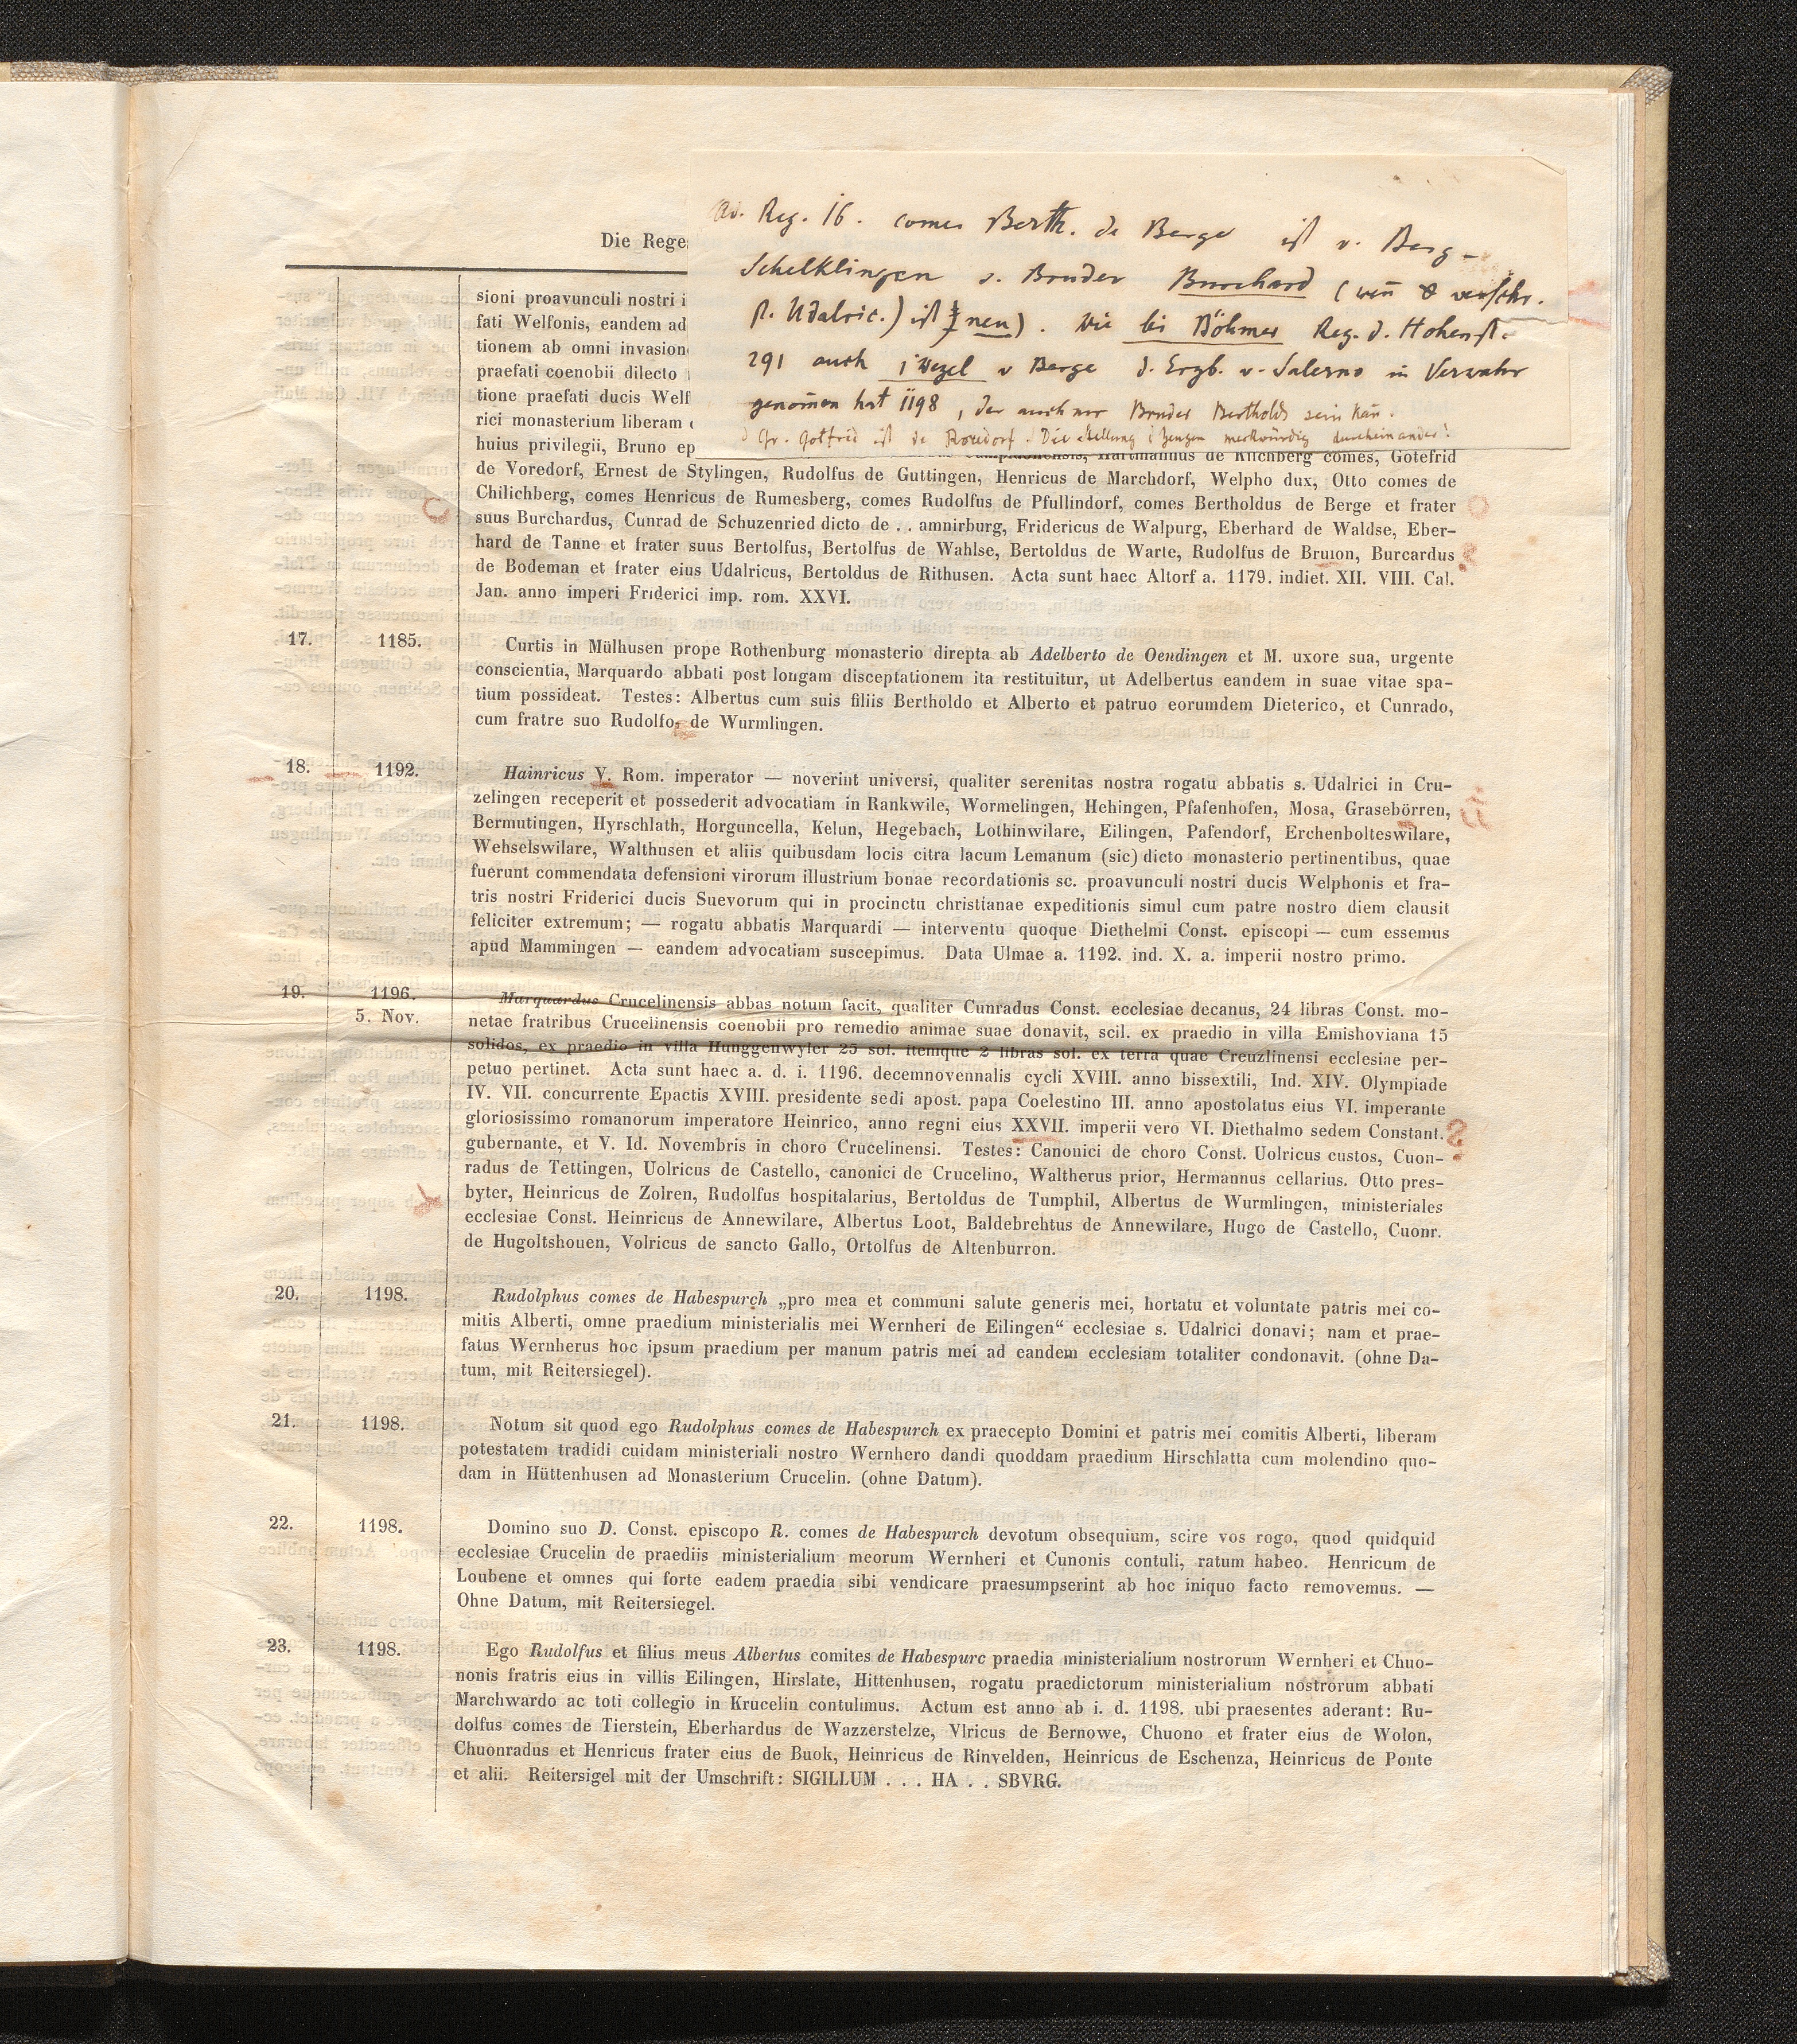 Ad. Reg. 16. comes Berth. de Berge ist v. Berg-
Schelklingen s. Bruder Burchard (wen̄ & verschr.
st. Udalric.) ist neu). Wie bei Böhmer Reg. d. Hohenst.
291 auch i Wezel v Berge d. Erzb. v. Salerno in Verwahr
genom̄en hat 1198, der auch nur Bruder Bertholds sein kan̄.
Gr. Gotfrid ist de Roredorf. Die Stellung d Zeugen merkwürdig durcheinander!
Die Rege
sioni proavunculi nostri i
fati Welfonis, eandem ad
tionem ab omni invasion
praefati coenobii dilecto
tione praefati ducis Welf
rici monasterium liberam
huius privilegii, Bruno ep
Hartmannus de Kilchberg comes, Gotefrid
de Voredorf, Ernest de Stylingen, Rudolfus de Guttingen, Henricus de Marchdorf, Welpho dux, Otto comes de
Chilichberg, comes Henricus de Rumesberg, comes Rudolfus de Pfullindorf, comes Bertholdus de Berge et frater
suus Burchardus, Cunrad de Schuzenried dicto de . . amnirburg, Fridericus de Walpurg, Eberhard de Waldse, Eber-
hard de Tanne et frater suus Bertolfus, Bertolfus de Wahlse, Bertoldus de Warte, Rudolfus de Bruion, Burcardus
de Bodeman et frater eius Udalricus, Bertoldus de Rithusen. Acta sunt haec Altorf a. 1179. indict. XII. VIII. Cal.
Jan. anno imperi Friderici imp. rom. XXVI.
17. 1185. Curtis in Mülhusen prope Rothenburg monasterio direpta ab Adelberto de Oendingen et M. uxore sua, urgente
conscientia, Marquardo abbati post longam disceptationem ita restituitur, ut Adelbertus eandem in suae vitae spa-
tium possideat. Testes: Albertus cum suis filiis Bertholdo et Alberto et patruo eorumdem Dieterico, et Cunrado,
cum fratre suo Rudolfo, de Wurmlingen.
18. 1192. Hainricus V. Rom. imperator — noverint universi, qualiter serenitas nostra rogatu abbatis s. Udalrici in Cru-
zelingen receperit et possederit advocatiam in Rankwile, Wormelingen, Hehingen, Pfafenhofen, Mosa, Grasebörren,
Bermutingen, Hyrschlath, Horguncella, Kelun, Hegebach, Lothinwilare, Eilingen, Pafendorf, Erchenbolteswilare,
Wehselswilare, Walthusen et aliis quibusdam locis citra lacum Lemanum (sic) dicto monasterio pertinentibus, quae
fuerunt commendata defensioni virorum illustrium bonae recordationis sc. proavunculi nostri ducis Welphonis et fra-
tris nostri Friderici ducis Suevorum qui in procinctu christianae expeditionis simul cum patre nostro diem clausit
feliciter extremum; — rogatu abbatis Marquardi — interventu quoque Diethelmi Const. episcopi — cum essemus
apud Mammingen — eandem advocatiam suscepimus. Data Ulmae a. 1192. ind. X. a. imperii nostro primo.
19. 1196. Marquardus Crucelinensis abbas notum facit, qualiter Cunradus Const. ecclesiae decanus, 24 libras Const. mo-
5. Nov. netae fratribus Crucelinensis coenobii pro remedio animae suae donavit, scil. ex praedio in villa Emishoviana 15
solidos, ex praedio in villa Hunggenwyler 25 sol. itemque 2 libras sol. ex terra quae Creuzlinensi ecclesiae per-
petuo pertinet. Acta sunt haec a. d. i. 1196. decemnovennalis cycli XVIII. anno bissextili, Ind. XIV. Olympiade
IV. VII. concurrente Epactis XVIII. presidente sedi apost. papa Coelestino III. anno apostolatus eius VI. imperante
gloriosissimo romanorum imperatore Heinrico, anno regni eius XXVII. imperii vero VI. Diethalmo sedem Constant.
gubernante, et V. Id. Novembris in choro Crucelinensi. Testes: Canonici de choro Const. Uolricus custos, Cuon-
radus de Tettingen, Uolricus de Castello, canonici de Crucelino, Waltherus prior, Hermannus cellarius. Otto pres-
byter, Heinricus de Zolren, Rudolfus hospitalarius, Bertoldus de Tumphil, Albertus de Wurmlingen, ministeriales
ecclesiae Const. Heinricus de Annewilare, Albertus Loot, Baldebrehtus de Annewilare, Hugo de Castello, Cuonr.
de Hugoltshouen, Volricus de sancto Gallo, Ortolfus de Altenburron.
20. 1198. Rudolphus comes de Habespurch „pro mea et communi salute generis mei, hortatu et voluntate patris mei co-
mitis Alberti, omne praedium ministerialis mei Wernheri de Eilingen“ ecclesiae s. Udalrici donavi; nam et prae-
fatus Wernherus hoc ipsum praedium per manum patris mei ad eandem ecclesiam totaliter condonavit. (ohne Da-
tum, mit Reitersiegel).
21. 1198. Notum sit quod ego Rudolphus comes de Habespurch ex praecepto Domini et patris mei comitis Alberti, liberam
potestatem tradidi cuidam ministeriali nostro Wernhero dandi quoddam praedium Hirschlatta cum molendino quo-
dam in Hüttenhusen ad Monasterium Crucelin. (ohne Datum).
22. 1198. Domino suo D. Const. episcopo R. comes de Habespurch devotum obsequium, scire vos rogo, quod quidquid
ecclesiae Crucelin de praediis ministerialium meorum Wernheri et Cunonis contuli, ratum habeo. Henricum de
Loubene et omnes qui forte eadem praedia sibi vendicare praesumpserint ab hoc iniquo facto removemus. —
Ohne Datum, mit Reitersiegel.
23. 1198. Ego Rudolfus et filius meus Albertus comites de Habespurc praedia ministerialium nostrorum Wernheri et Chuo-
nonis fratris eius in villis Eilingen, Hirslate, Hittenhusen, rogatu praedictorum ministerialium nostrorum abbati
Marchwardo ac toti collegio in Krucelin contulimus. Actum est anno ab i. d. 1198. ubi praesentes aderant: Ru-
dolfus comes de Tierstein, Eberhardus de Wazzerstelze, Vlricus de Bernowe, Chuono et frater eius de Wolon,
Chuonradus et Henricus frater eius de Buok, Heinricus de Rinvelden, Heinricus de Eschenza, Heinricus de Ponte
et alii. Reitersigel mit der Umschrift: SIGILLUM . . . HA . . SBVRG.